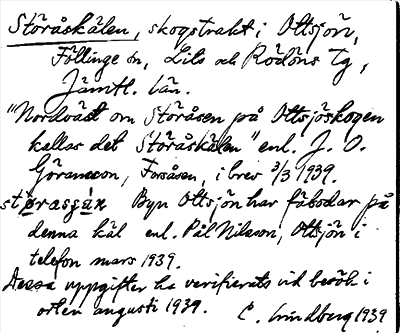 Störåskälen, skogstrakt i Ottsjön,
Föllinge sn, Lits och Rödöns tg,
Jämtl. län.
"Nordväst om Störåsen på Ottsjöskogen
kallas det Störåskälen" enl. J. O.
Göransson, Forsåsen, i brev 3/3 1939.
Byn Ottsjön har fäbodar på
denna käl enl. Pål Nilsson, Ottsjön i
telefon mars 1939.
Dessa uppgifter ha verifierats vid besök i
orten augusti 1939. C. Lindberg 1939